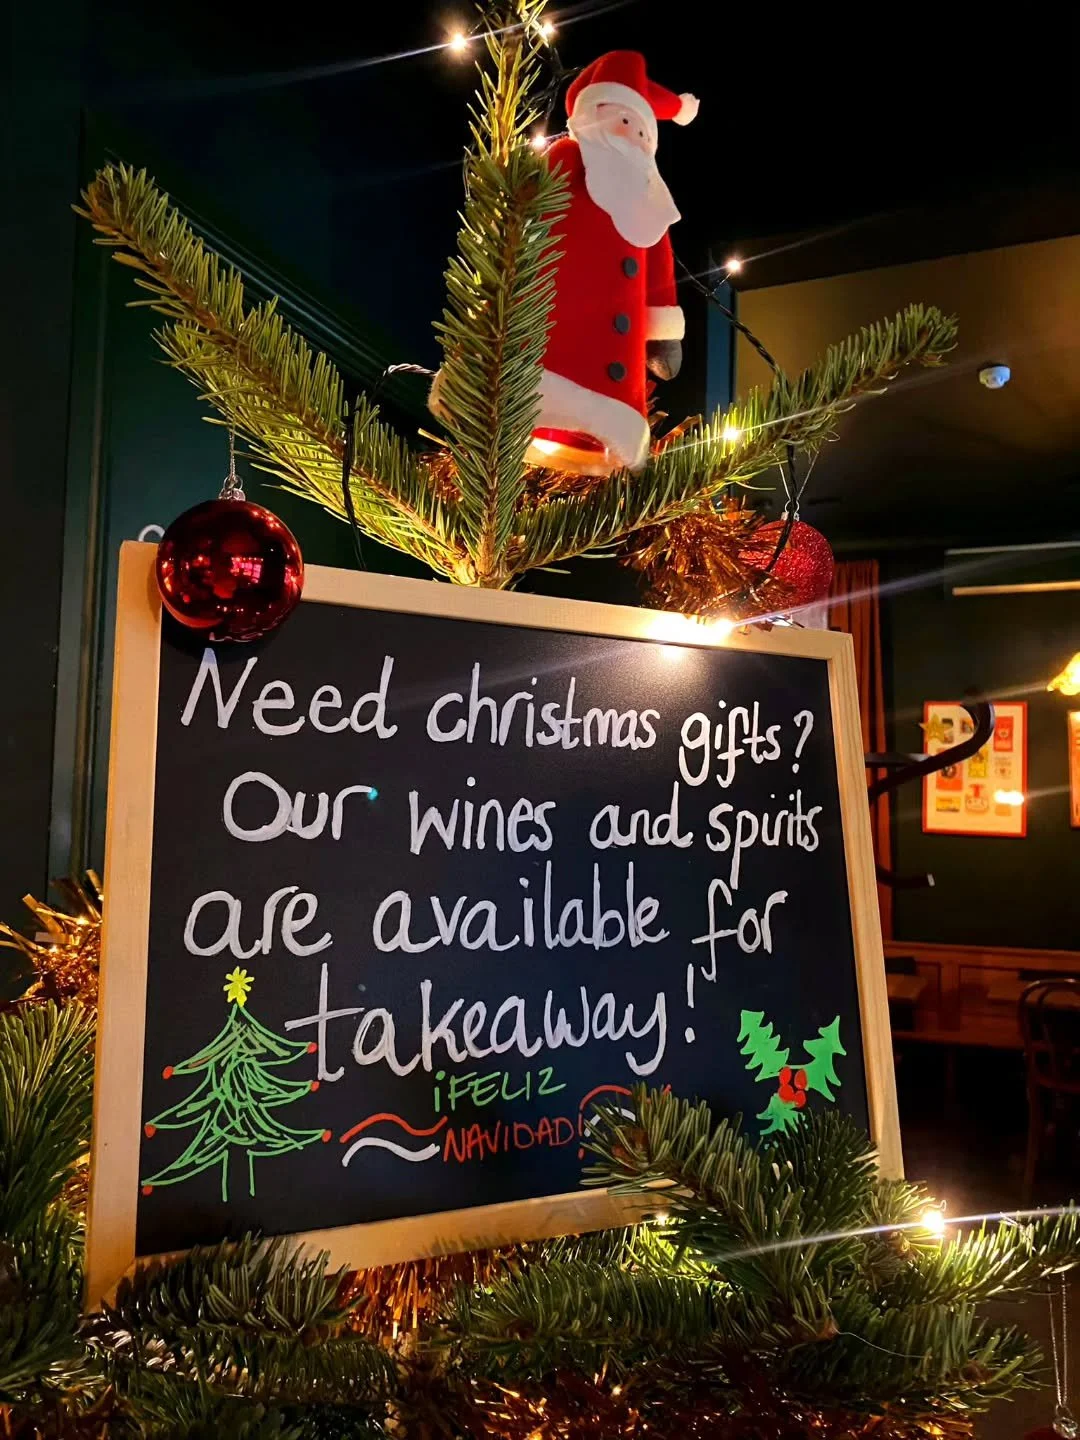 Need christmas gifts?
Our wines and spirits
are available for
takeaway!
¡FELIZ
NAVIDAD!